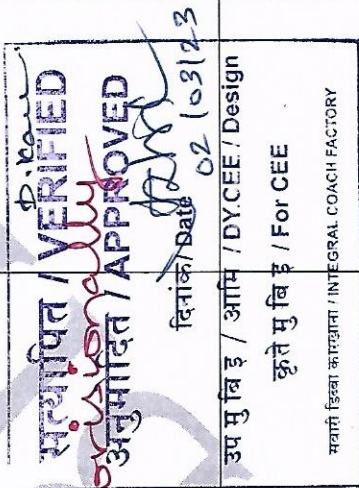 D. Kau
सत्यापित / VERIFIED
ovisionally
अनुमोदित / APPROVED
दिनांक/Date 02/03/23
उप मु बि इ / आमि / DY.CEE / Design
कृते मु बि इ / For CEE
सवारी डिब्बा कारखाना / INTEGRAL COACH FACTORY